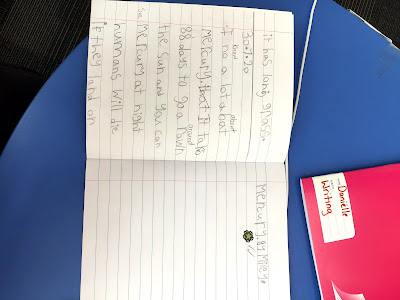 it has long grass.
30.7.20
I no a lot abot
about
Mercury. that it take
88 days to go a rown
around
the sun and you can
see Mercury at night
humans will die
If they land on
Mercury. By Miley.
Danielle
Writing